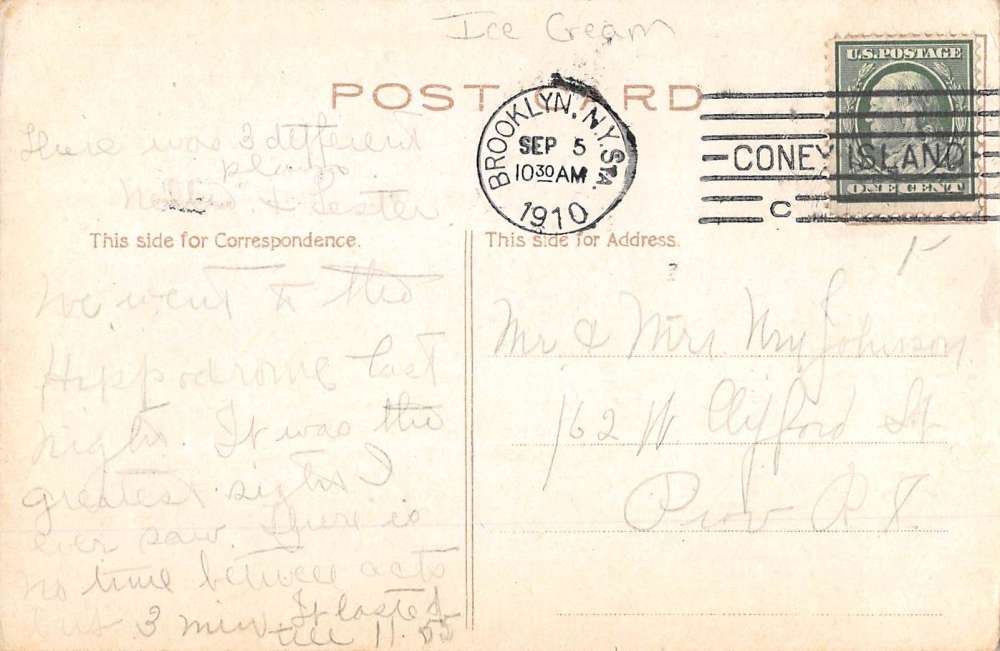 Ice Cream
POST CARD
U.S. POSTAGE
ONE CENT
BROOKLYN, N.Y. STA.
SEP 5
10 30 AM
1910
CONEY ISLAND
C
There was 3 different
plays.
& Lester
This side for Correspondence.
We went to the
Hippodrome last
night. It was the
greatest sight I
ever saw. There is
no time between acts
but 3 min. It lasted
till 11.55
This side for Address.
Mr & Mrs Hry Johnson
162 W Clifford St.
Prov R.I.